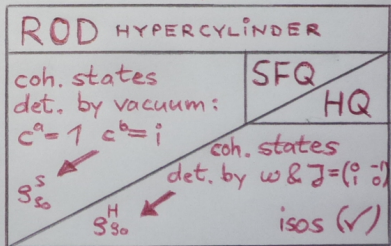 ROD HYPERCYLINDER
coh. states
det. by vacuum:
cᵃ=1 cᵇ=i
SFQ
HQ
gˢ_ξ₀
gᴴ_ξ₀
coh. states
det. by ω & J=(⁰ᵢ ⁻ⁱ₀)
isos (✓)